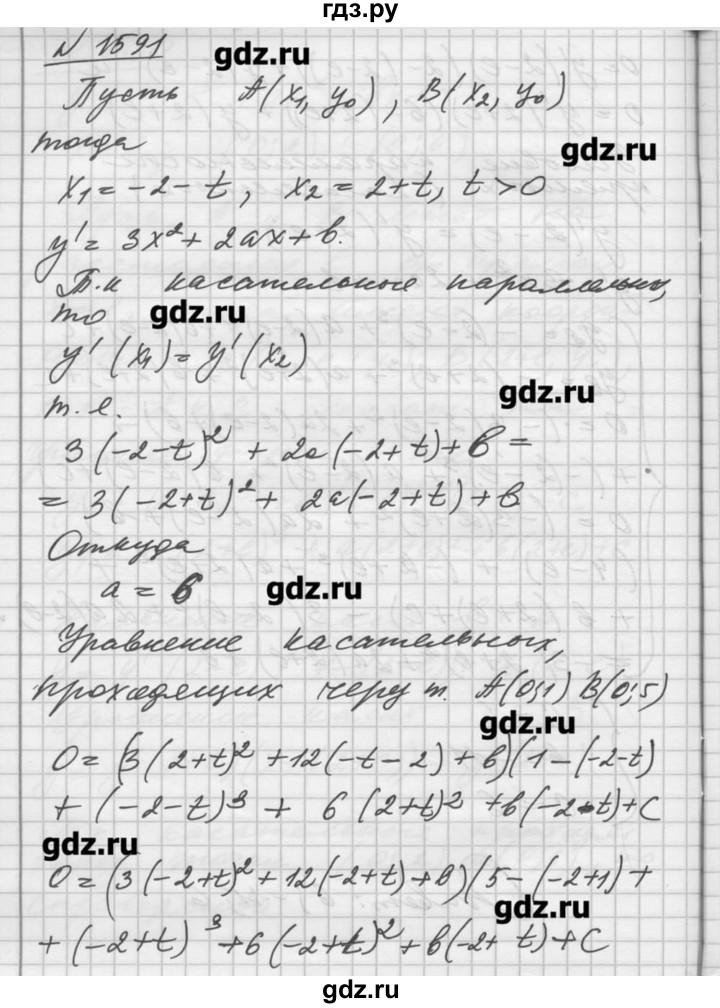 гдз.ру
N 1591
gdz.ru
Пусть A(x₁, y₀), B(x₂, y₀)
тогда
gdz.ru
x₁ = -2 - t, x₂ = 2+t, t > 0
y' = 3x² + 2ax + b.
Т.к касательные параллельны,
то
gdz.ru
y'(x₁) = y'(x₂)
gdz.ru
т. е.
3(-2-t)² + 2a(-2+t) + b =
= 3(-2+t)² + 2a(-2+t) + b
Откуда
a = 6
gdz.ru
Уравнение касательных,
проходящих через т. A(0;1) B(0;5)
gdz.ru
0 = (3(2+t)² + 12(-t-2) + b)(1-(-2-t)
+ (-2-t)³ + 6(2+t)² + b(-2-t) + C
gdz.ru
0 = (3(-2+t)² + 12(-2+t) + b)(5-(-2+1) +
gdz.ru
+ (-2+t)³ + 6(-2+t)² + b(-2+t) + C
gdz.ru